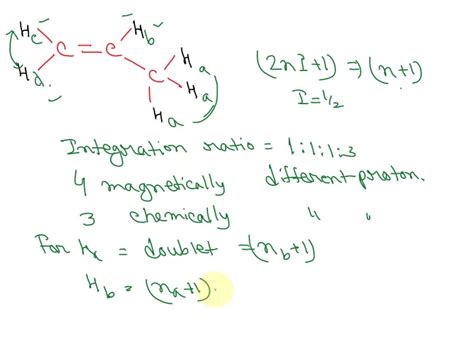 Hc Hb
C = C
Hd C Ha
Ha
Ha
(2nI+1) ⇒ (n+1)
I=1/2
Integration ratio = 1:1:1:3
4 magnetically different proton.
3 chemically "
For Hc = doublet =(nb+1)
Hb = (na+1).